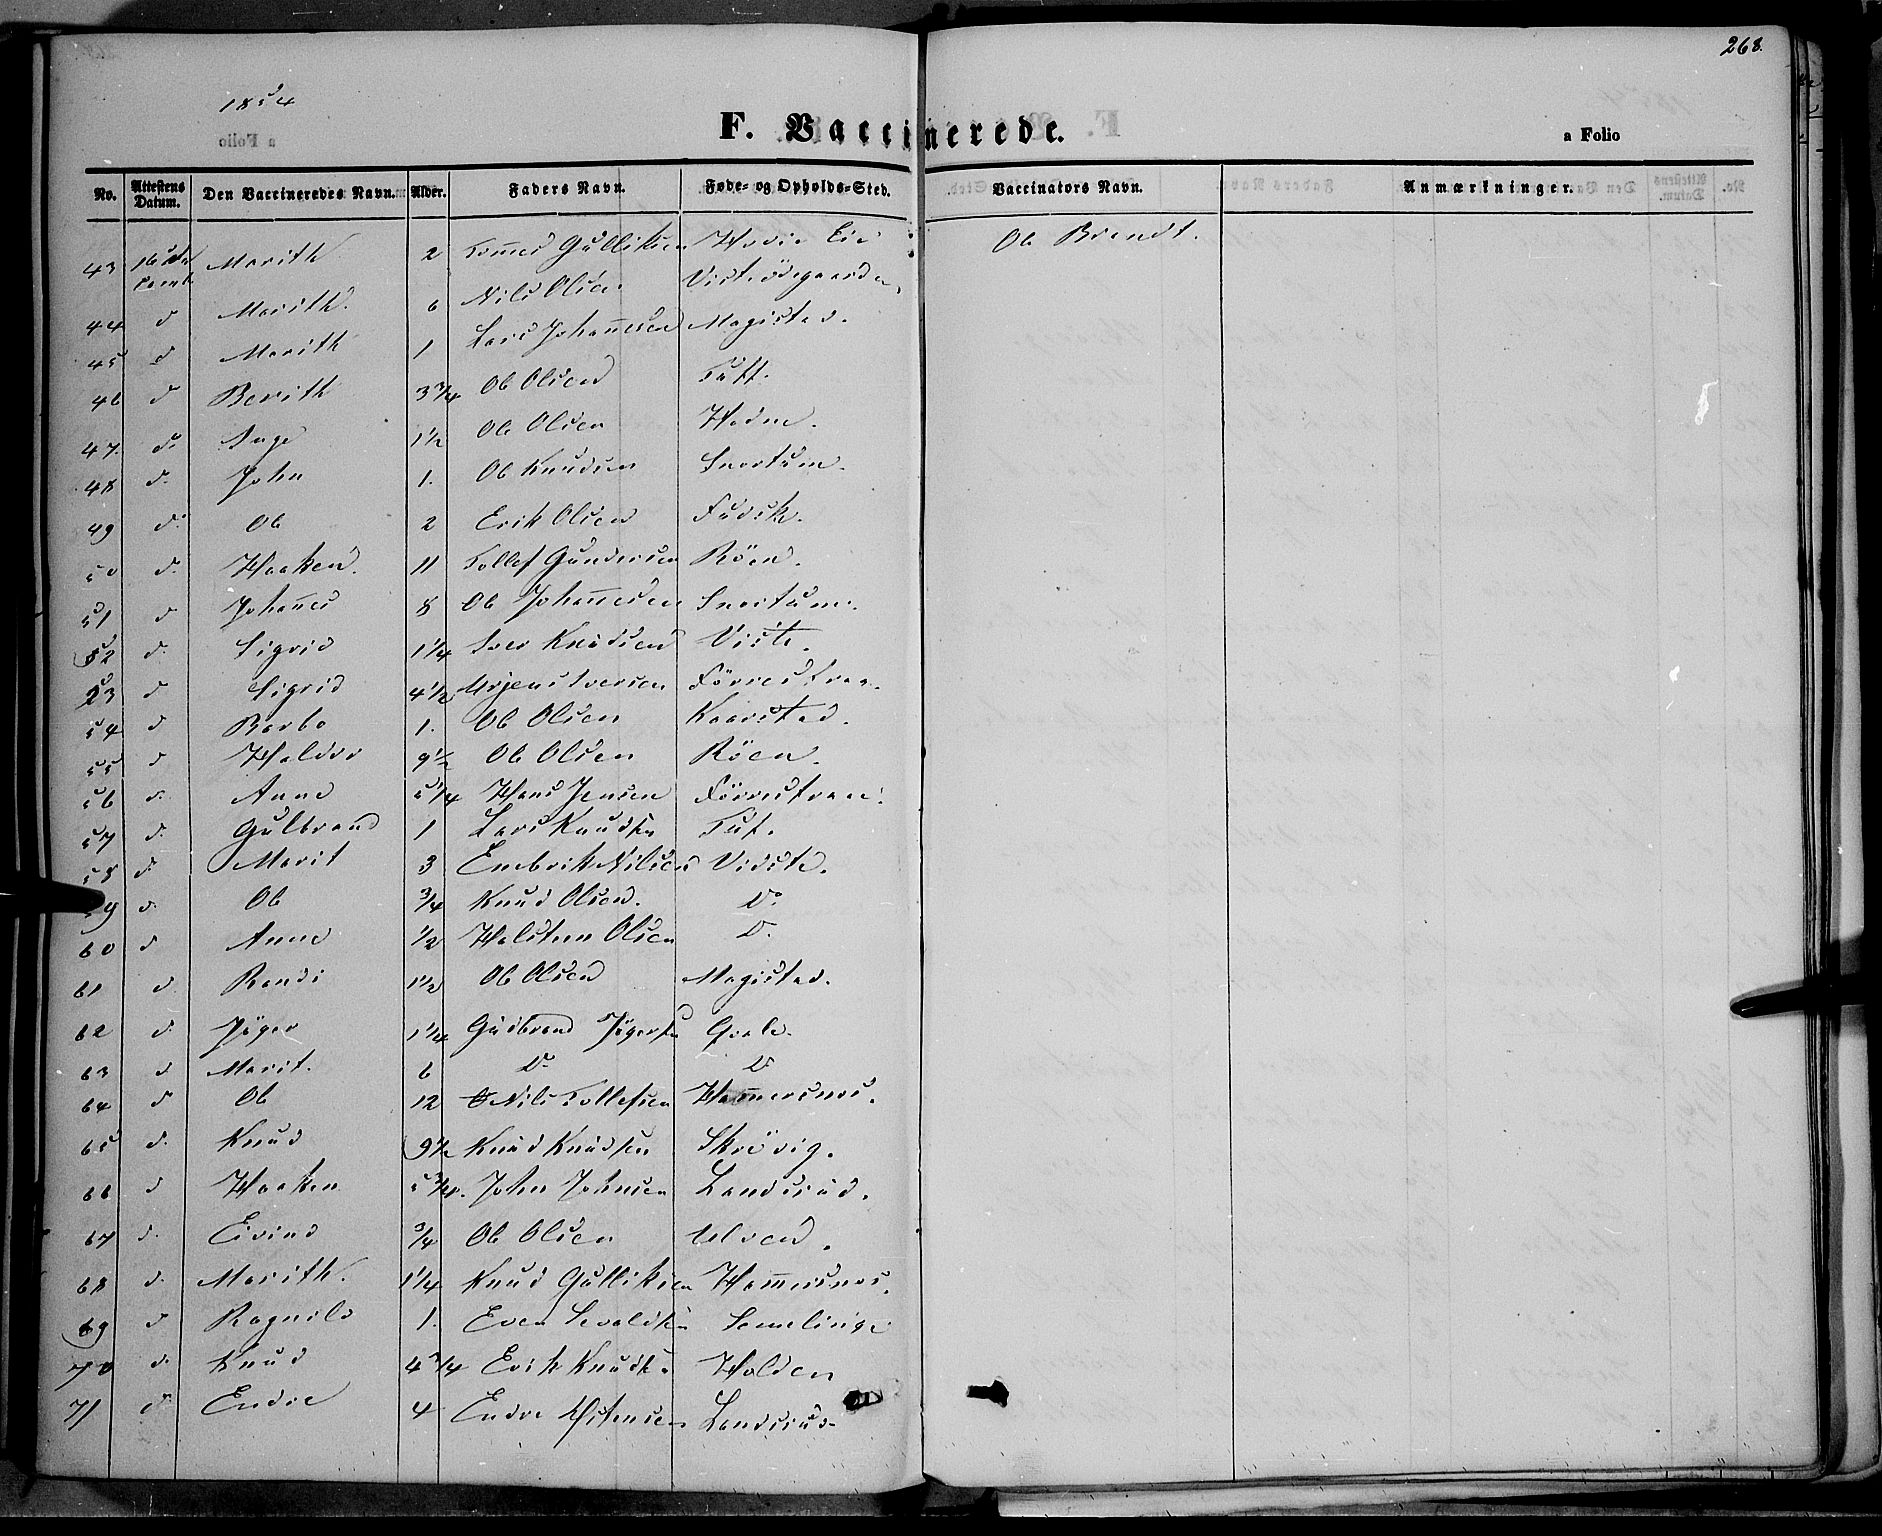 268.
1854
F. Vaccinerede.
a Folio
No. Attestens Datum. Den Vaccineredes Navn. Alder. Faders Navn. Føde- og Opholds-Sted. Vaccinators Navn. Anmærkninger.
43 16de Marith 2 Gulliksen Eie Ol Brandt.
44 d Marith. 6 Nils Olsen
45 d Marith 1 Lars Johannesen Magistad.
46 d Berith 3 3/4 Ol Olsen Tuff.
47. d. Inge 1 1/2 Ol Olsen
48 d. John 1. Ol Knudsen Snortum.
49 d. Ol 2 Erik Olsen
50 d. Haaken. 11 Tollef Gundersen Röen.
51 d Johannes 8 Ol Johannesen Snortum.
52 d. Sigrid 1 1/4 Iver Knudsen Viste.
53 d Sigrid 4 1/2 Iversen
54 d Barbo 1. Ol Olsen Kaarstad.
55 d Haldor 9 1/2 Ol Olsen Röen.
56 d. Anne 5 1/4 Hans Jensen
57 d. Gulbrand 1 Lars Knudsen Tuf.
58 d. Marit 3 Embrik Nilsen Vidste.
59 d. Ol 3/4 Knud Olsen. Do
60 d Anne 1/2 Halsten Olsen D.
61 d Randi 1 1/2 Ol Olsen Magistad.
62 d. Jöger 1 1/4 Gudbrand Jögersen Qvale.
63 d Marit. 6 Do D
64 d Ol 12 Nils Tollefsen Hammersnes.
65 d. Knud 9 1/2 Knud Knudsen Skrövig.
66 d Haaken 5 3/4. John Johnsen Landsrud.
67 d. Eivind 3/4 Ol Olsen
68 d. Marith. 1 1/4 Knud Gulliksen Hammersnes.
69 d Ragnild 1. Even Sevaldsen Semelinge
70 d. Knud 4 3/4 Erik Knudsen Holden
71 d. Endre 4 Endre Landsrud